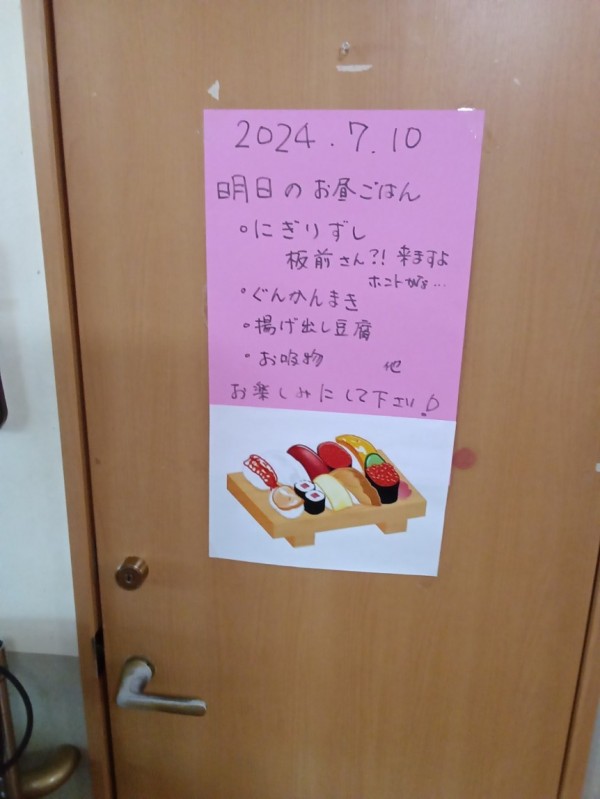 2024.7.10
明日のお昼ごはん
・にぎりずし
板前さん?! 来ますよ
ホントかな…
・ぐんかんまき
・揚げ出し豆腐
・お吸物 他
お楽しみにして下さい!